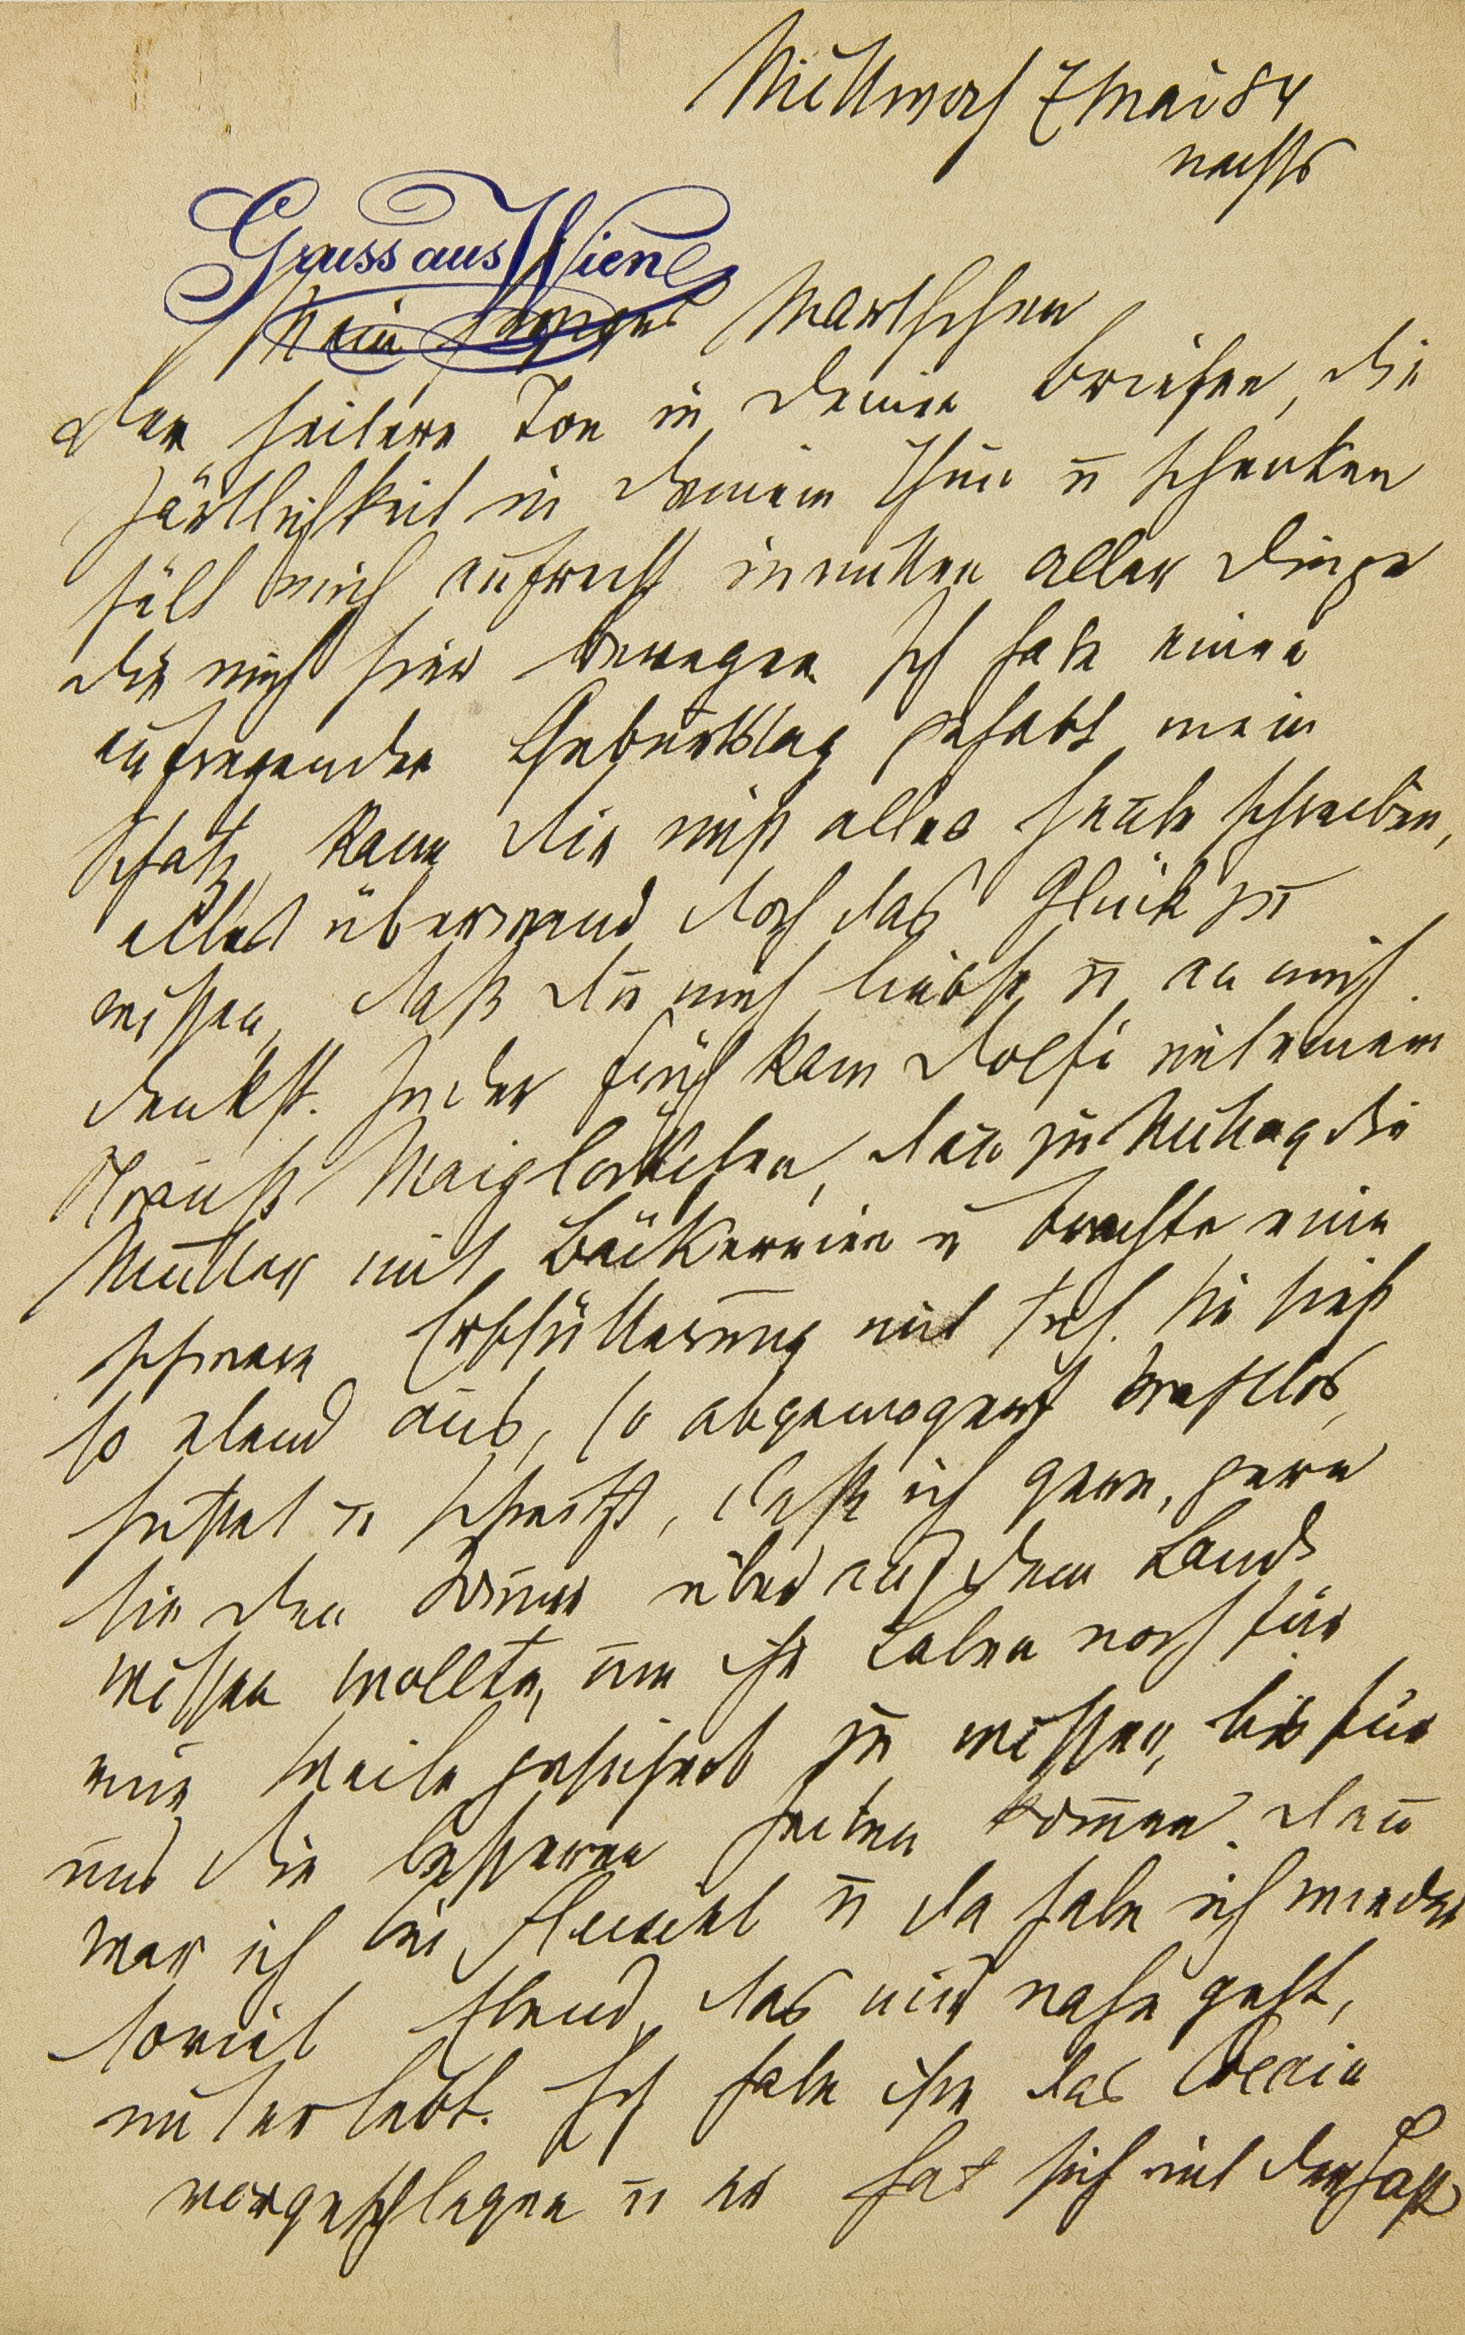 Mittwoch 7 Mai 84
nachts
Gruss aus Wien
Mein Marthchen
Der heitere Ton in Deinen Briefen, die
Zärtlichkeit in Deinem Thun u schenken
hält mich aufrecht inmitten aller Dinge
die mich hier bewegen. Ich habe einen
aufregenden Geburtstag gehabt mein
Schatz, kann Dir nicht alles heute schreiben,
alles überwand doch das Glück zu
wissen, daß Du mich liebst u an mich
denkst. In der Früh kam Dolfi mit einem
Strauß Maiglöckchen, dann zu Mittag die
Mutter mit Bäckereien u brachte eine
schwere Erschütterung mit sich. Sie sieht
so elend aus, so abgemagert kraftlos,
hustet u schwitzt, daß ich gern, gern
sie den über auf dem Land
wissen wollte, um ihr Leben noch für
eine Weile gesichert zu wissen, bis für
uns die besseren Zeiten kommen. Dann
war ich bei Fleischl u da habe ich wieder
soviel Elend, das mir nahe geht,
miterlebt. Ich habe ihm das Cocain
vorgeschlagen u er hat sich mit der Hast